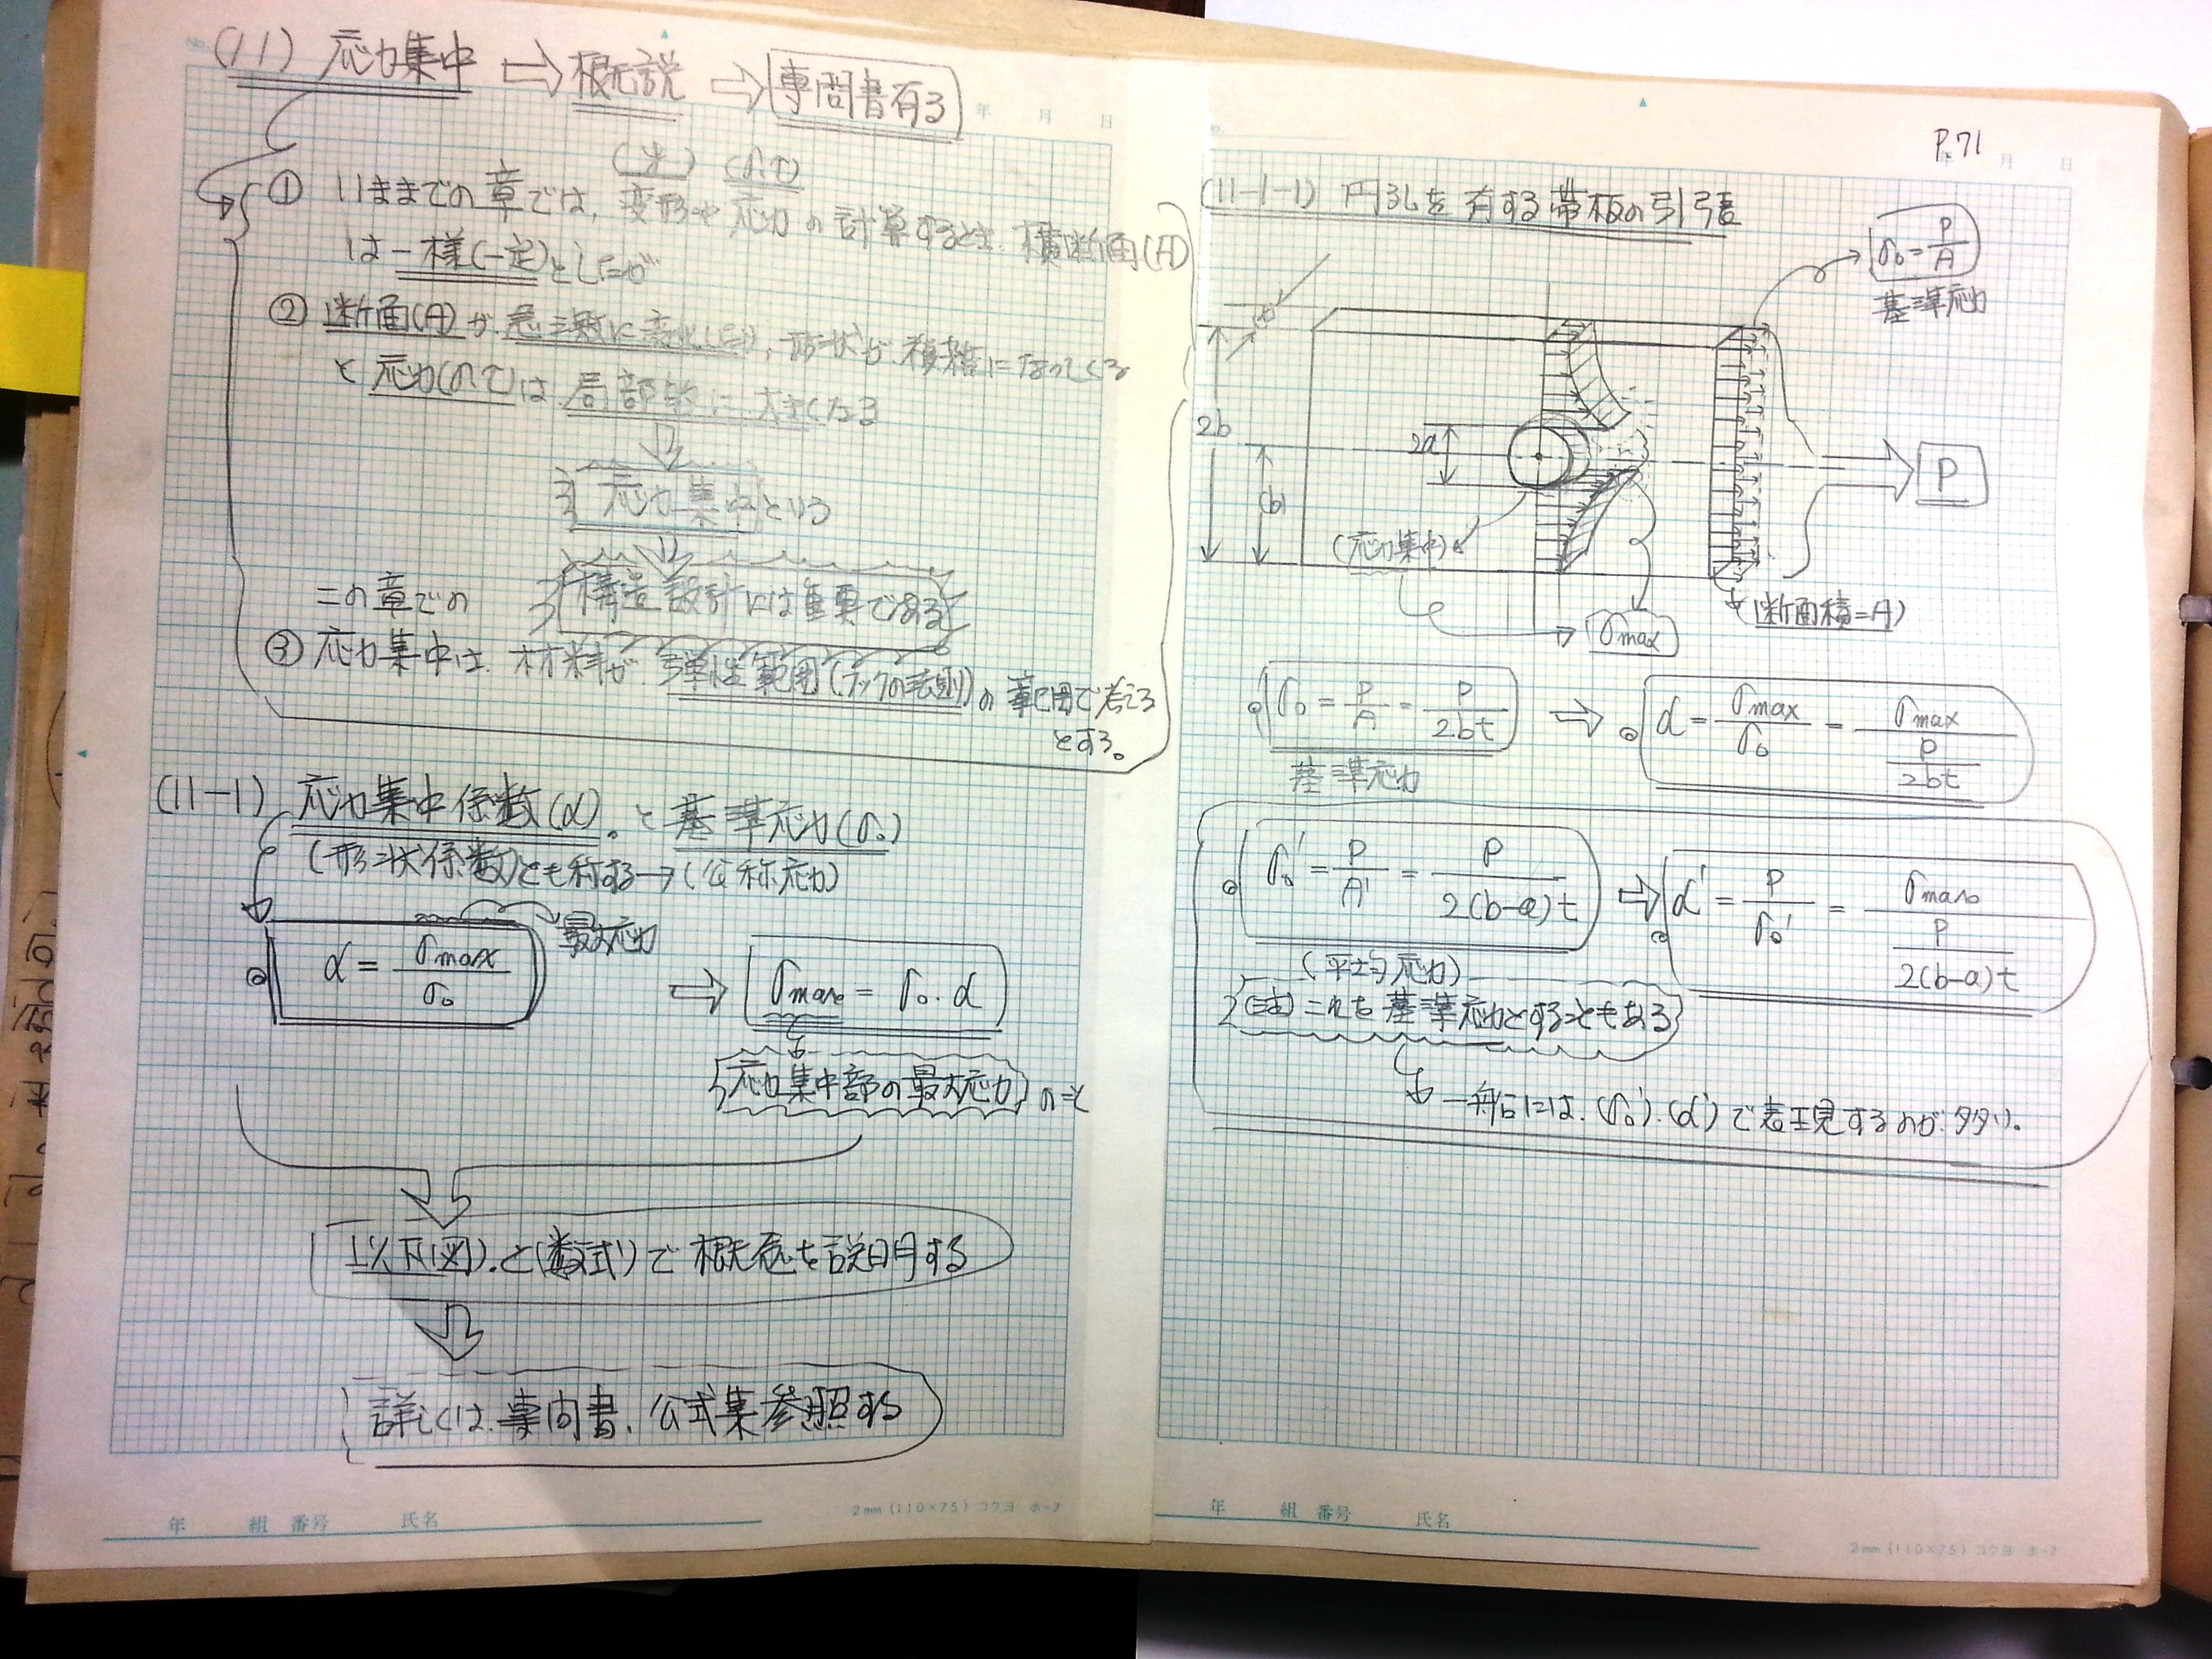 (11) 応力集中 ⇒ 概説 ⇒ 専門書有る
年 月 日
(σ.τ)
① いままでの章では、変形や応力の計算するとき、横断面(A)
は一様(一定)としたが
② 断面(A)が、急激に変化したり、形状が、複雑になってくる
と応力(σ.τ)は、局部的に、大きくなる
応力集中という
構造設計には重要である
この章での
③ 応力集中は、材料が、弾性範囲(フックの法則)の範囲で考える
とする。
(11-1) 応力集中係数(α)。と基準応力(σ₀)
(形状係数)とも称する→(公称応力)
最大応力
α = σmax/σ₀ ⇒ σmax = σ₀・α
応力集中部の最大応力のこと
以下(図)、と(数式)で概念を説明する
詳しくは、専門書、公式集参照する
年 組 番号 氏名
2mm (110×75) コクヨ ホ-7
No.
P.71
年 月 日
(11-1-1) 円孔を有する帯板の引張
σ₀ = P/A
基準応力
t
2b
(b)
2a
P
(応力集中)
σmax
(断面積=A)
σ₀ = P/A = P/2bt ⇒ α = σmax/σ₀ = σmax/(P/2bt)
基準応力
σ₀' = P/A' = P/2(b-a)t ⇒ α' = P/σ₀' = σmax/(P/2(b-a)t)
(平均応力)
(注)これを基準応力とすることもある
一般には、(σ₀')、(α')で表現するのが、多い。
年 組 番号 氏名
2mm (110×75) コクヨ ホ-7